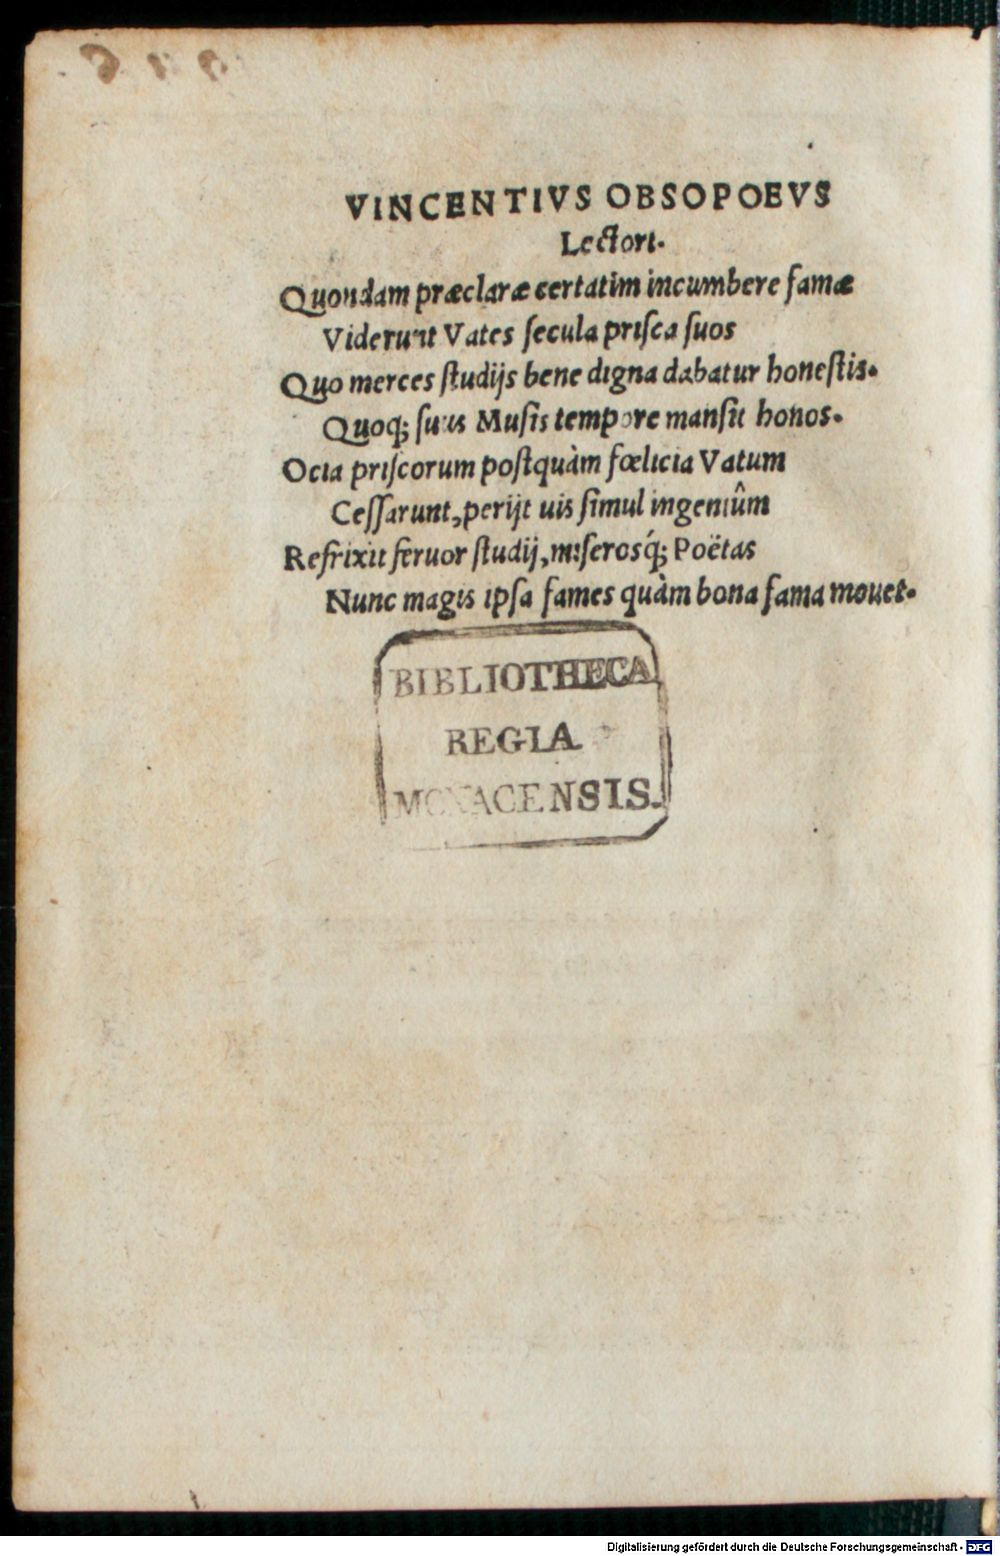 VINCENTIVS OBSOPOEVS
Lectori.
Quondam præclaræ certatim incumbere famæ
Viderunt Vates secula prisca suos
Quo merces studijs bene digna dabatur honestis.
Quoq; suus Musis tempore mansit honos.
Ocia priscorum postquàm fœlicia Vatum
Cessarunt, perijt uis simul ingeniûm
Refrixit feruor studij, miserosq́; Poëtas
Nunc magis ipsa fames quàm bona fama mouet.
BIBLIOTHECA
REGIA
MONACENSIS.
Digitalisierung gefördert durch die Deutsche Forschungsgemeinschaft - DFG